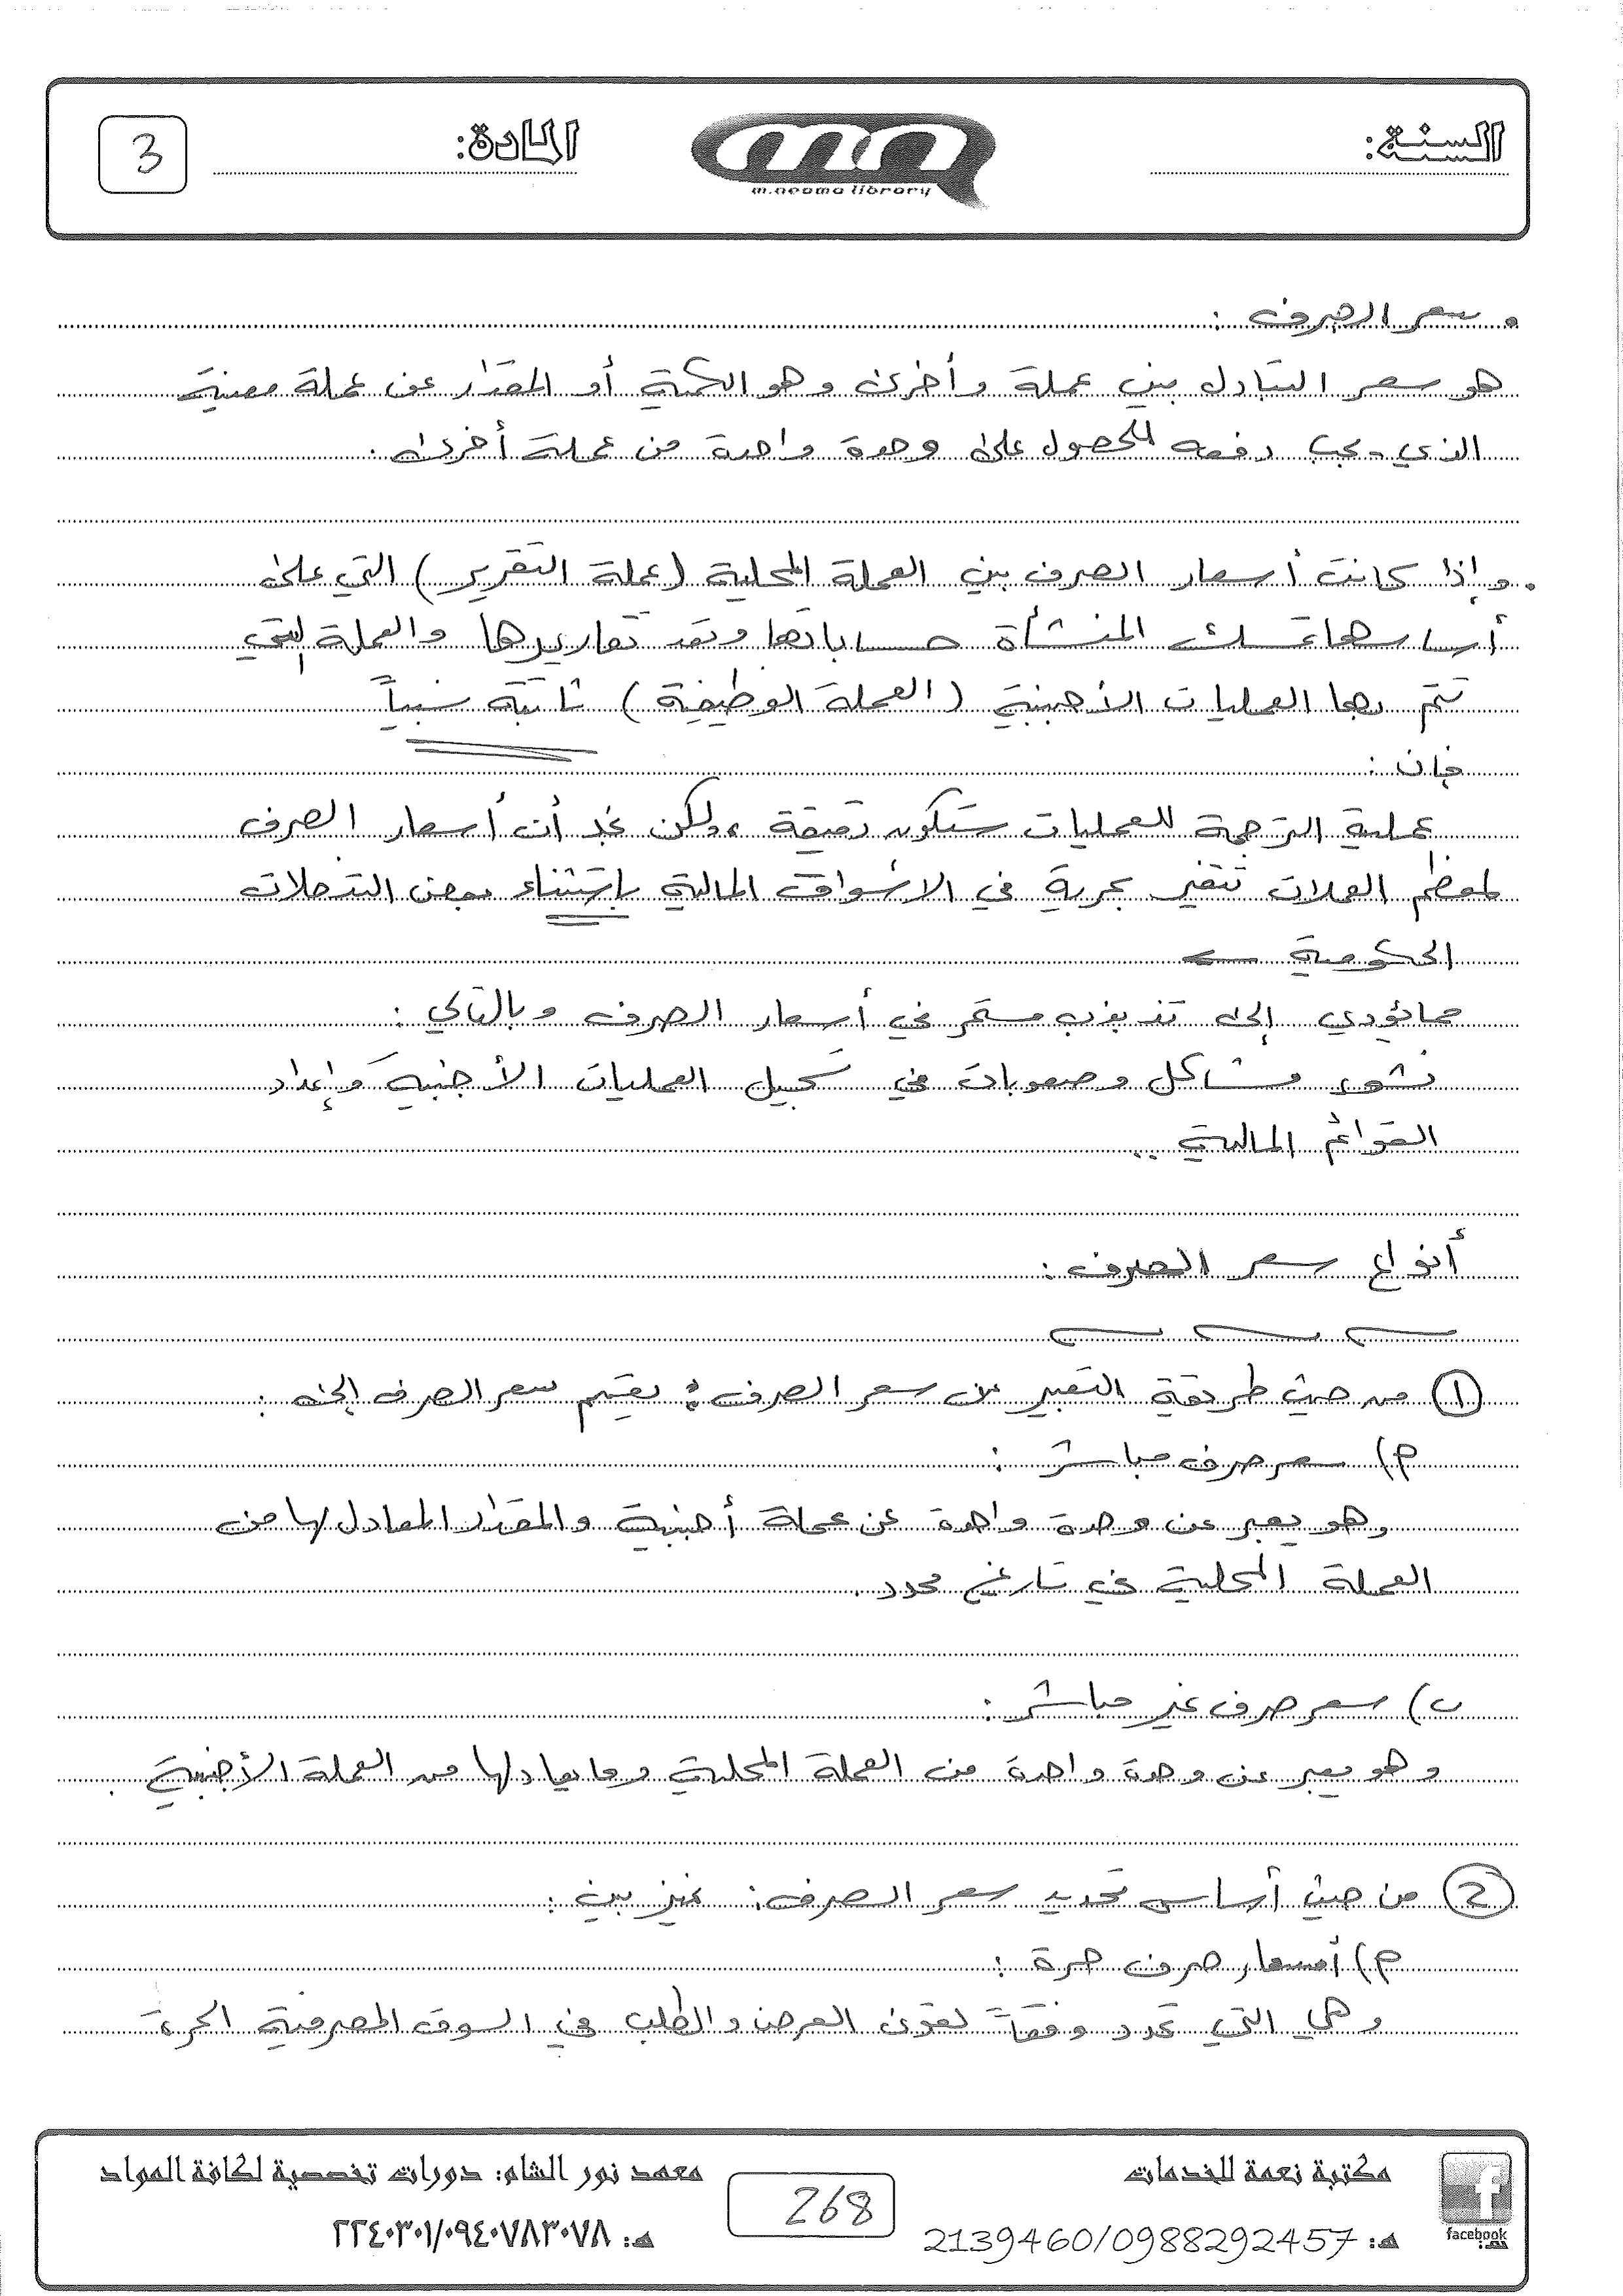 السنة:
m.neama library
المادة:
3
. سعر الصرف :
هو سعر التبادل بين عملة وأخرى وهو الكمية أو المقدار من عملة معينة
الذي يجب دفعه للحصول على وحدة واحدة من عملة أخرى .
. وإذا كانت أسعار الصرف بين العملة المحلية (عملة التقرير) التي على
أساسها تمسك المنشأة حساباتها وتعد تقاريرها والعملة التي
تتم بها العمليات الأجنبية (العملة الوظيفية) ثابتة نسبياً
فإن :
عملية الترجمة للعمليات ستكون دقيقة ، ولكن نجد أن أسعار الصرف
لمعظم العملات تتغير بحرية في الاسواق المالية باستثناء بعض التدخلات
الحكومية ←
مما يؤدي إلى تذبذب مستمر في أسعار الصرف وبالتالي :
نشوء مشاكل وصعوبات في تسجيل العمليات الأجنبية وإعداد
القوائم المالية ..
أنواع سعر الصرف :
① من حيث طريقة التعبير عن سعر الصرف : يقسم سعر الصرف إلى :
م) سعر صرف مباشر :
وهو يعبر عن وحدة واحدة من عملة أجنبية والمقدار المعادل لها من
العملة المحلية في تاريخ محدد .
ب) سعر صرف غير مباشر :
وهو يعبر عن وحدة واحدة من العملة المحلية وما يعادلها من العملة الأجنبية .
② من حيث أساس تحديد سعر الصرف : نميز بين :
م) أسعار صرف حرة :
وهي التي تحدد وفقاً لقوى العرض والطلب في السوق المصرفية الحرة
مكتبة نعمة للخدمات
هـ: 2139460/0988292457
facebook
268
معهد نور الشام: دورات تخصصية لكافة المواد
هـ: ٢٢٤٠٣٠١/٠٩٤٠٧٨٣٠٧٨